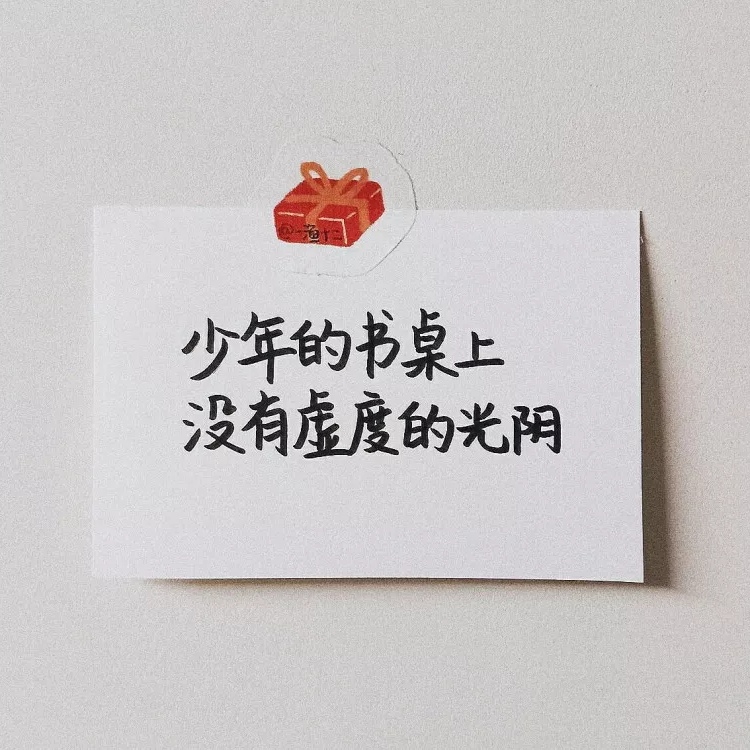 @一渔十二
少年的书桌上
没有虚度的光阴